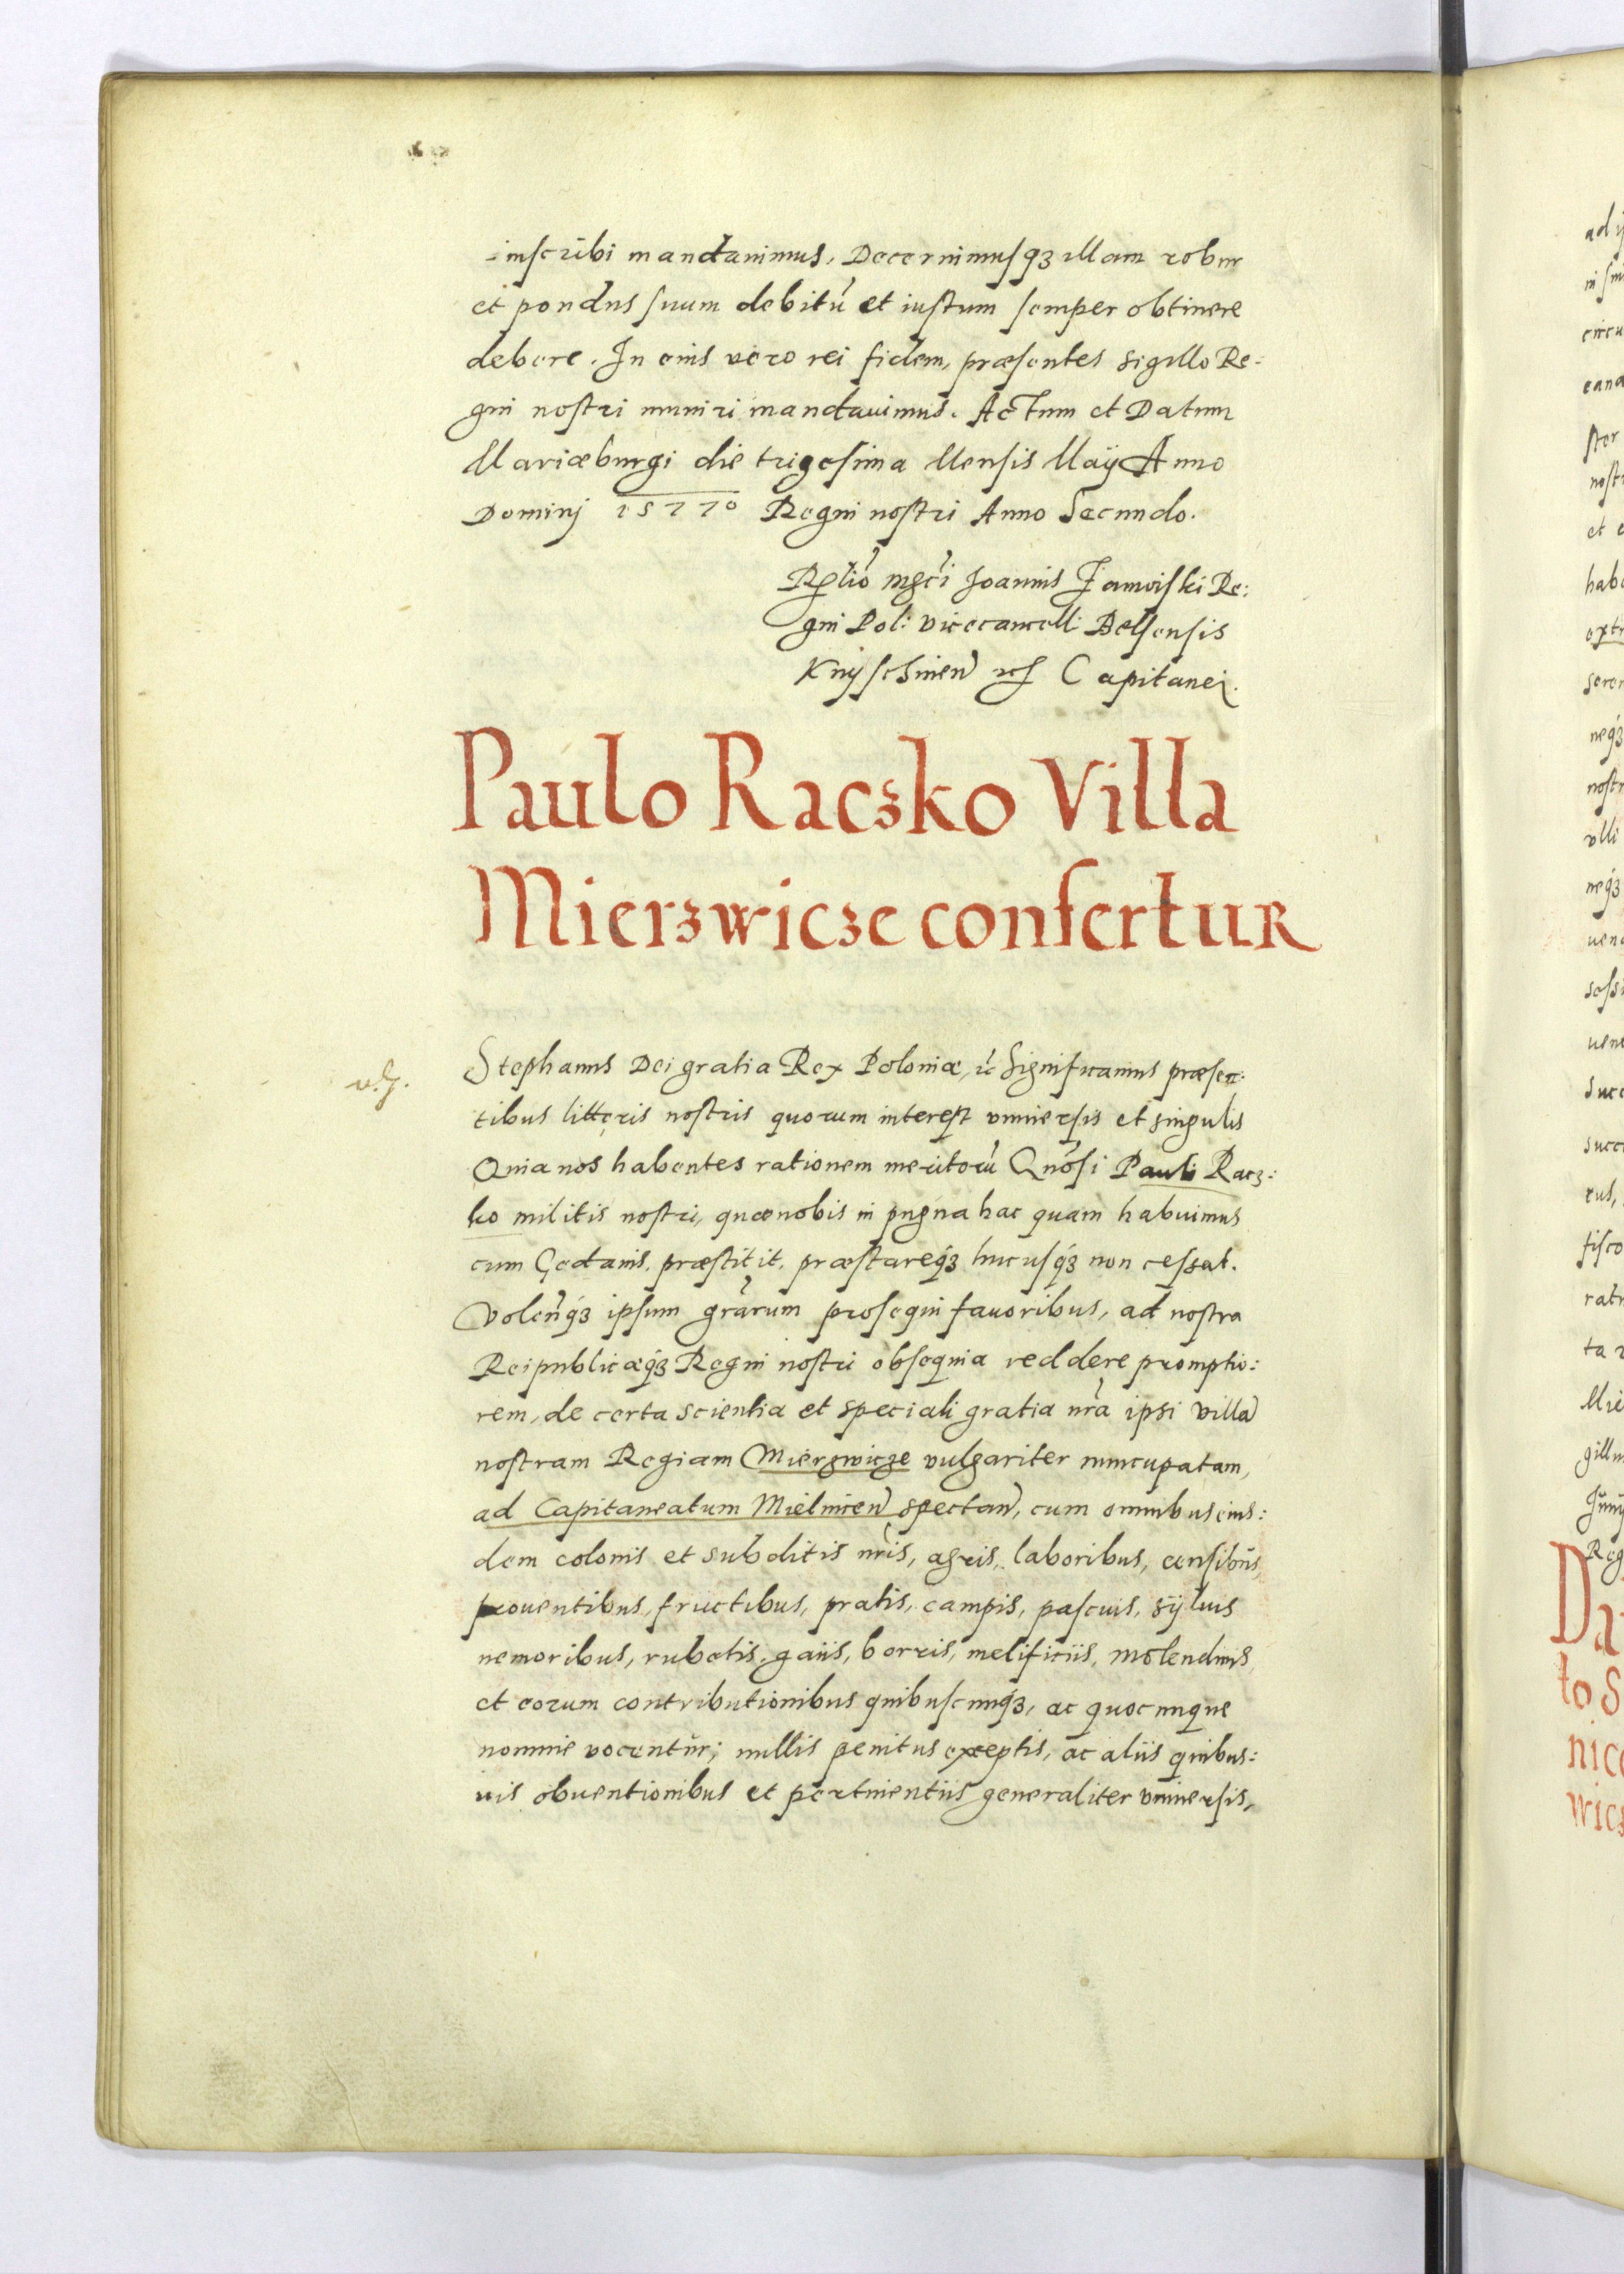 inscribi mandauimus, Decernimusqꝫ illam robur
et pondus suum debitū et iustum semper obtinere
debere. In eius vero rei fidem, præsentes sigillo Re:
gni nostri muniri mandauimus. Actum et Datum
Mariæburgi die trigesima Mensis Maÿ Anno
Dominj 1577º Regni nostri Anno Secundo.
Rłtio mgci Joannis Zamoiski Re:
gni Pol: vicecancell: Belsensis
Knyschinen̄ etc Capitanei.
Paulo Racsko Villa
Mierzwicze confertur
Stephanus Dei gratia Rex Poloniæ, etc Significamus præsen:
tibus litteris nostris quorum interest vniuersis et singulis
Quia nos habentes rationem meritorū Gnosi Pauli Racz:
ko militis nostri, quæ nobis in pugna hac quam habuimus
cum Gedanis. præstitit, præstareqꝫ hucusqꝫ non cessat.
Volenqꝫ ipsum grarum prosequi fauoribus, ad nostra
Reipublicæqꝫ Regni nostri obsequia reddere promptio:
rem, de certa scientia et speciali gratia nra ipsi villā
nostram Regiam Mierzwicze vulgariter nuncupatam,
ad Capitaneatum Mielnicen̄ spectan̄, cum omnibus eius:
dem colonis et subditis nris, agris, laboribus, censibus,
prouentibus, fructibus, pratis, campis, pascuis, sÿluis
nemoribus, rubetis, gaiis, borris, melificiis, molendinis,
et eorum contributionibus quibuscunqꝫ, ac quocunque
nomine vocentur; nullis penitus exceptis, ac aliis quibus:
uis obuentionibus et pertinentiis generaliter vniuersis,